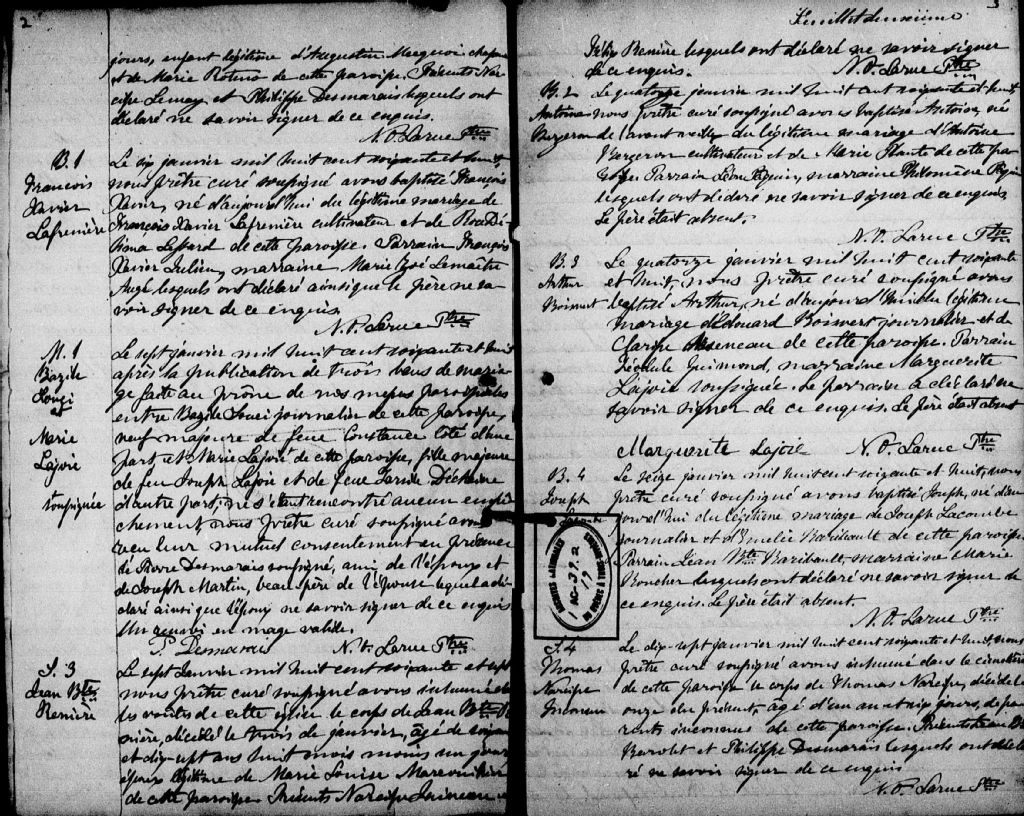 2
jours, enfant légitime d'Augustin
et de Marie de cette paroisse. Présents Nar-
cisse Lemay et Philippe Desmarais lesquels ont
déclaré ne savoir signer de ce enquis.
N. O. Larue Ptre
B. 1
Francois
Xavier
Lafrenière
Le six janvier mil huit cent soixante et huit
nous prêtre curé soussigné avons baptisé François
Xavier, né d'aujourd'hui du légitime mariage de
François Xavier Lafrenière cultivateur et de
de cette paroisse. Parrain François
Xavier Julien, marraine Marie Lemaître
Augé lesquels ont déclaré ainsi que le père ne sa-
voir signer de ce enquis.
N. O. Larue Ptre
M. 1
Bazile
et
Marie
Lajoie
soussignée
Le sept janvier mil huit cent soixante et huit
après la publication de trois bans de maria-
ge faite au prône de nos messes paroissiales
entre Bazile journalier de cette paroisse,
majeur de feue Constance Coté d'une
part, et Marie Lajoie de cette paroisse, fille majeure
de feu Joseph Lajoie et de feue
d'autre part, ne s'étant rencontré aucun empê-
chement, nous prêtre curé soussigné avons
reçu leur mutuel consentement en présence
de Pierre Desmarais soussigné, ami de l'époux et
de Joseph Martin, beau-père de l'épouse lequel a dé-
claré ainsi que l'époux ne savoir signer de ce enquis
Un renvoi en marge valide.
P. Desmarais N. O. Larue Ptre
S. 3
Jean Bte
Renière
Le sept Janvier mil huit cent soixante et
nous prêtre curé soussigné avons inhumé
les voûtes de cette église le corps de Jean Bte Re-
nière, décédé le trois de janvier, âgé de
et dix-sept ans huit mois moins un jour,
époux légitime de Marie Louise
de cette paroisse. Présents Narcisse
3
Feuillet deuxième
Renière lesquels ont déclaré ne savoir signer
de ce enquis. N. O. Larue Ptre
B. 2
Antoine
Bergeron
Le quatorze janvier mil huit cent soixante et huit
nous prêtre curé soussigné avons baptisé Antoine, né
de l'avant veille du légitime mariage d'Antoine
Bergeron cultivateur et de Marie Plante de cette pa-
roisse. Parrain marraine Philomène
lesquels ont déclaré ne savoir signer de ce enquis.
Le père était absent.
N. O. Larue Ptre
B. 3
Arthur
Boisvert
Le quatorze janvier mil huit cent soixante
et huit, nous prêtre curé soussigné avons
baptisé Arthur, né d'aujourd'hui du légitime
mariage d'Edouard Boisvert journalier et de
de cette paroisse. Parrain
Guimond, marraine Marguerite
Lajoie soussignée. Le parrain a déclaré ne
savoir signer de ce enquis. Le père était absent
Marguerite Lajoie N. O. Larue Ptre
B. 4
Joseph
Lacombe
Le seize janvier mil huit cent soixante et huit, nous
prêtre curé soussigné avons baptisé Joseph, né d'au-
jourd'hui du légitime mariage de Joseph Lacombe
journalier et d'Emelie Baribeault de cette paroisse
Parrain Jean Bte Baribault, marraine Marie
Boucher lesquels ont déclaré ne savoir signer de
ce enquis. Le père était absent.
N. O. Larue Ptre
S. 4
Thomas
Narcisse
Inconnu
Le dix-sept janvier mil huit cent soixante et huit, nous
prêtre curé soussigné avons inhumé dans le cimetière
de cette paroisse le corps de Thomas Narcisse, décédé le
onze du présent, âgé d'un an et six jours, de pa-
rents inconnus de cette paroisse. Présents
et Philippe Desmarais lesquels ont décla-
ré ne savoir signer de ce enquis
N. O. Larue Ptre